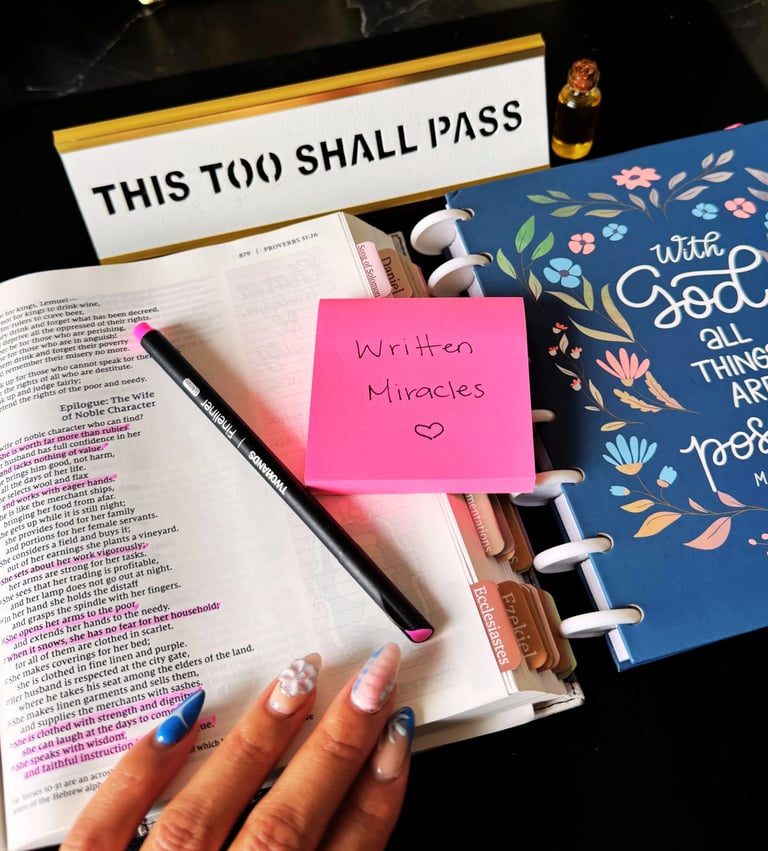 THIS TOO SHALL PASS
829 | PROVERBS 31:26
for kings, Lemuel—
not for kings to drink wine,
for rulers to crave beer,
drink and forget what has been decreed.
deprive all the oppressed of their rights.
for those who are perishing,
for those who are in anguish!
drink and forget their poverty
remember their misery no more.
up for those who cannot speak for the
the rights of all who are destitute.
up and judge fairly;
defend the rights of the poor and needy.
Epilogue: The Wife
of Noble Character
wife of noble character who can find?
She is worth far more than rubies.
husband has full confidence in her
and lacks nothing of value.
She brings him good, not harm,
all the days of her life.
She selects wool and flax
and works with eager hands.
She is like the merchant ships,
bringing her food from afar.
She gets up while it is still night;
she provides food for her family
and portions for her female servants.
She considers a field and buys it;
out of her earnings she plants a vineyard.
She sets about her work vigorously;
her arms are strong for her tasks.
She sees that her trading is profitable,
and her lamp does not go out at night.
In her hand she holds the distaff
and grasps the spindle with her fingers.
She opens her arms to the poor
and extends her hands to the needy.
When it snows, she has no fear for her household;
for all of them are clothed in scarlet.
She makes coverings for her bed;
she is clothed in fine linen and purple.
Her husband is respected at the city gate,
where he takes his seat among the elders of the land.
She makes linen garments and sells them,
and supplies the merchants with sashes.
She is clothed with strength and dignity;
she can laugh at the days to come.
She speaks with wisdom,
and faithful instruction
Verses 10-31 are an acros
of the Hebrew alph
which
Song of Solomon
Daniel
Written
Miracles
♡
TWOHANDS | Fineliner
Ecclesiastes
Ezekiel
With
God
all
THINGS
ARE
poss
M